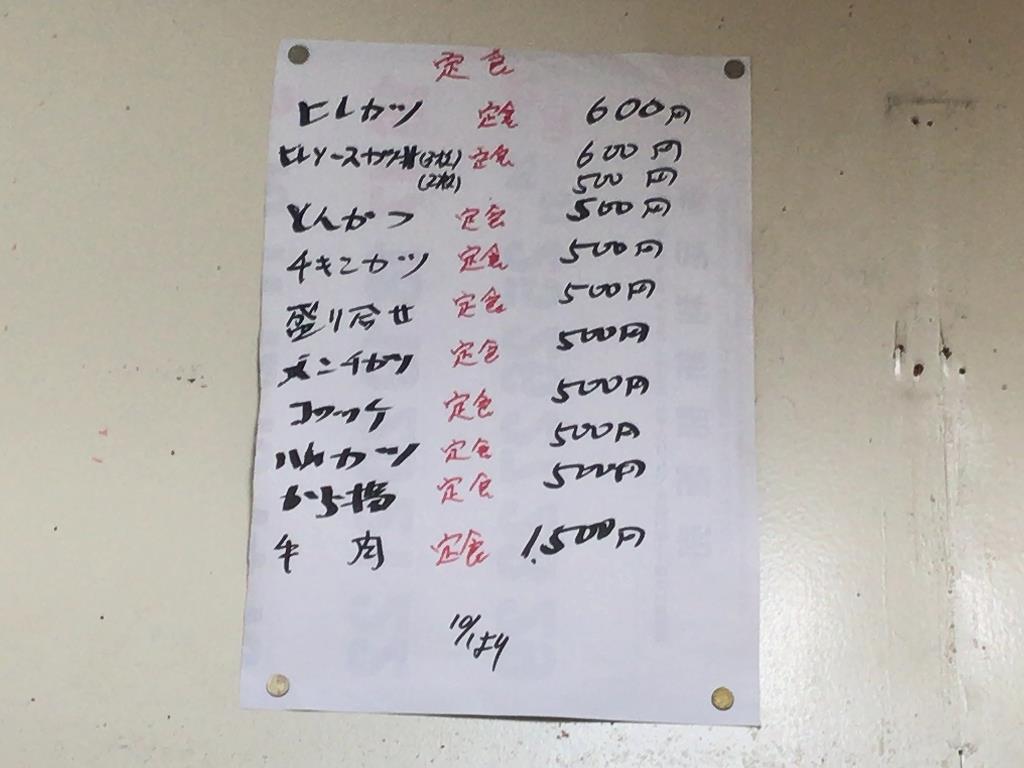 定食
ヒレカツ 定食 600円
ヒレソースカツ丼(3枚) 定食 600円
(2枚) 500円
とんかつ 定食 500円
チキンカツ 定食 500円
盛り合せ 定食 500円
メンチカツ 定食 500円
コロッケ 定食 500円
ハムカツ 定食 500円
から揚 定食 500円
牛肉 定食 1,500円
10/1より